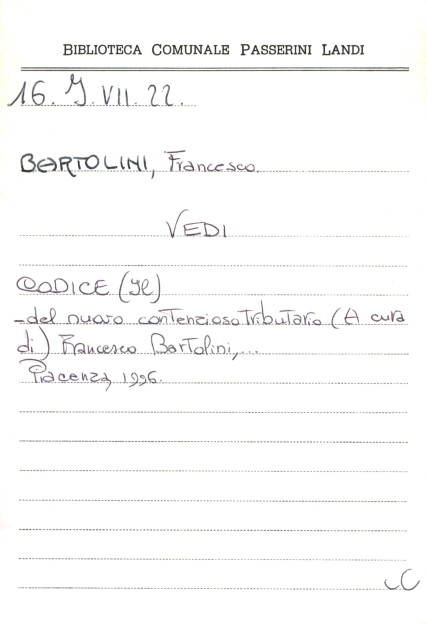 BIBLIOTECA COMUNALE PASSERINI LANDI
16. J. VII. 22.
BARTOLINI, Francesco.
VEDI
CODICE (Il)
- del nuovo contenzioso tributario (A cura
di) Francesco Bartolini,...
Piacenza, 1996.